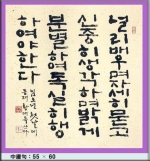 널리배우며자세히묻고
신중히생각하며밝게
분별하며독실히행
하여야한다
中庸句 : 55 × 60